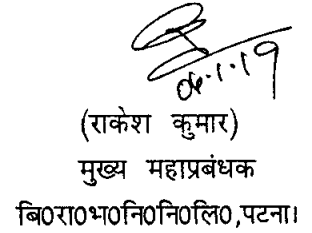 04.1.19
(राकेश कुमार)
मुख्य महाप्रबंधक
बि0रा0भ0नि0नि0लि0,पटना।